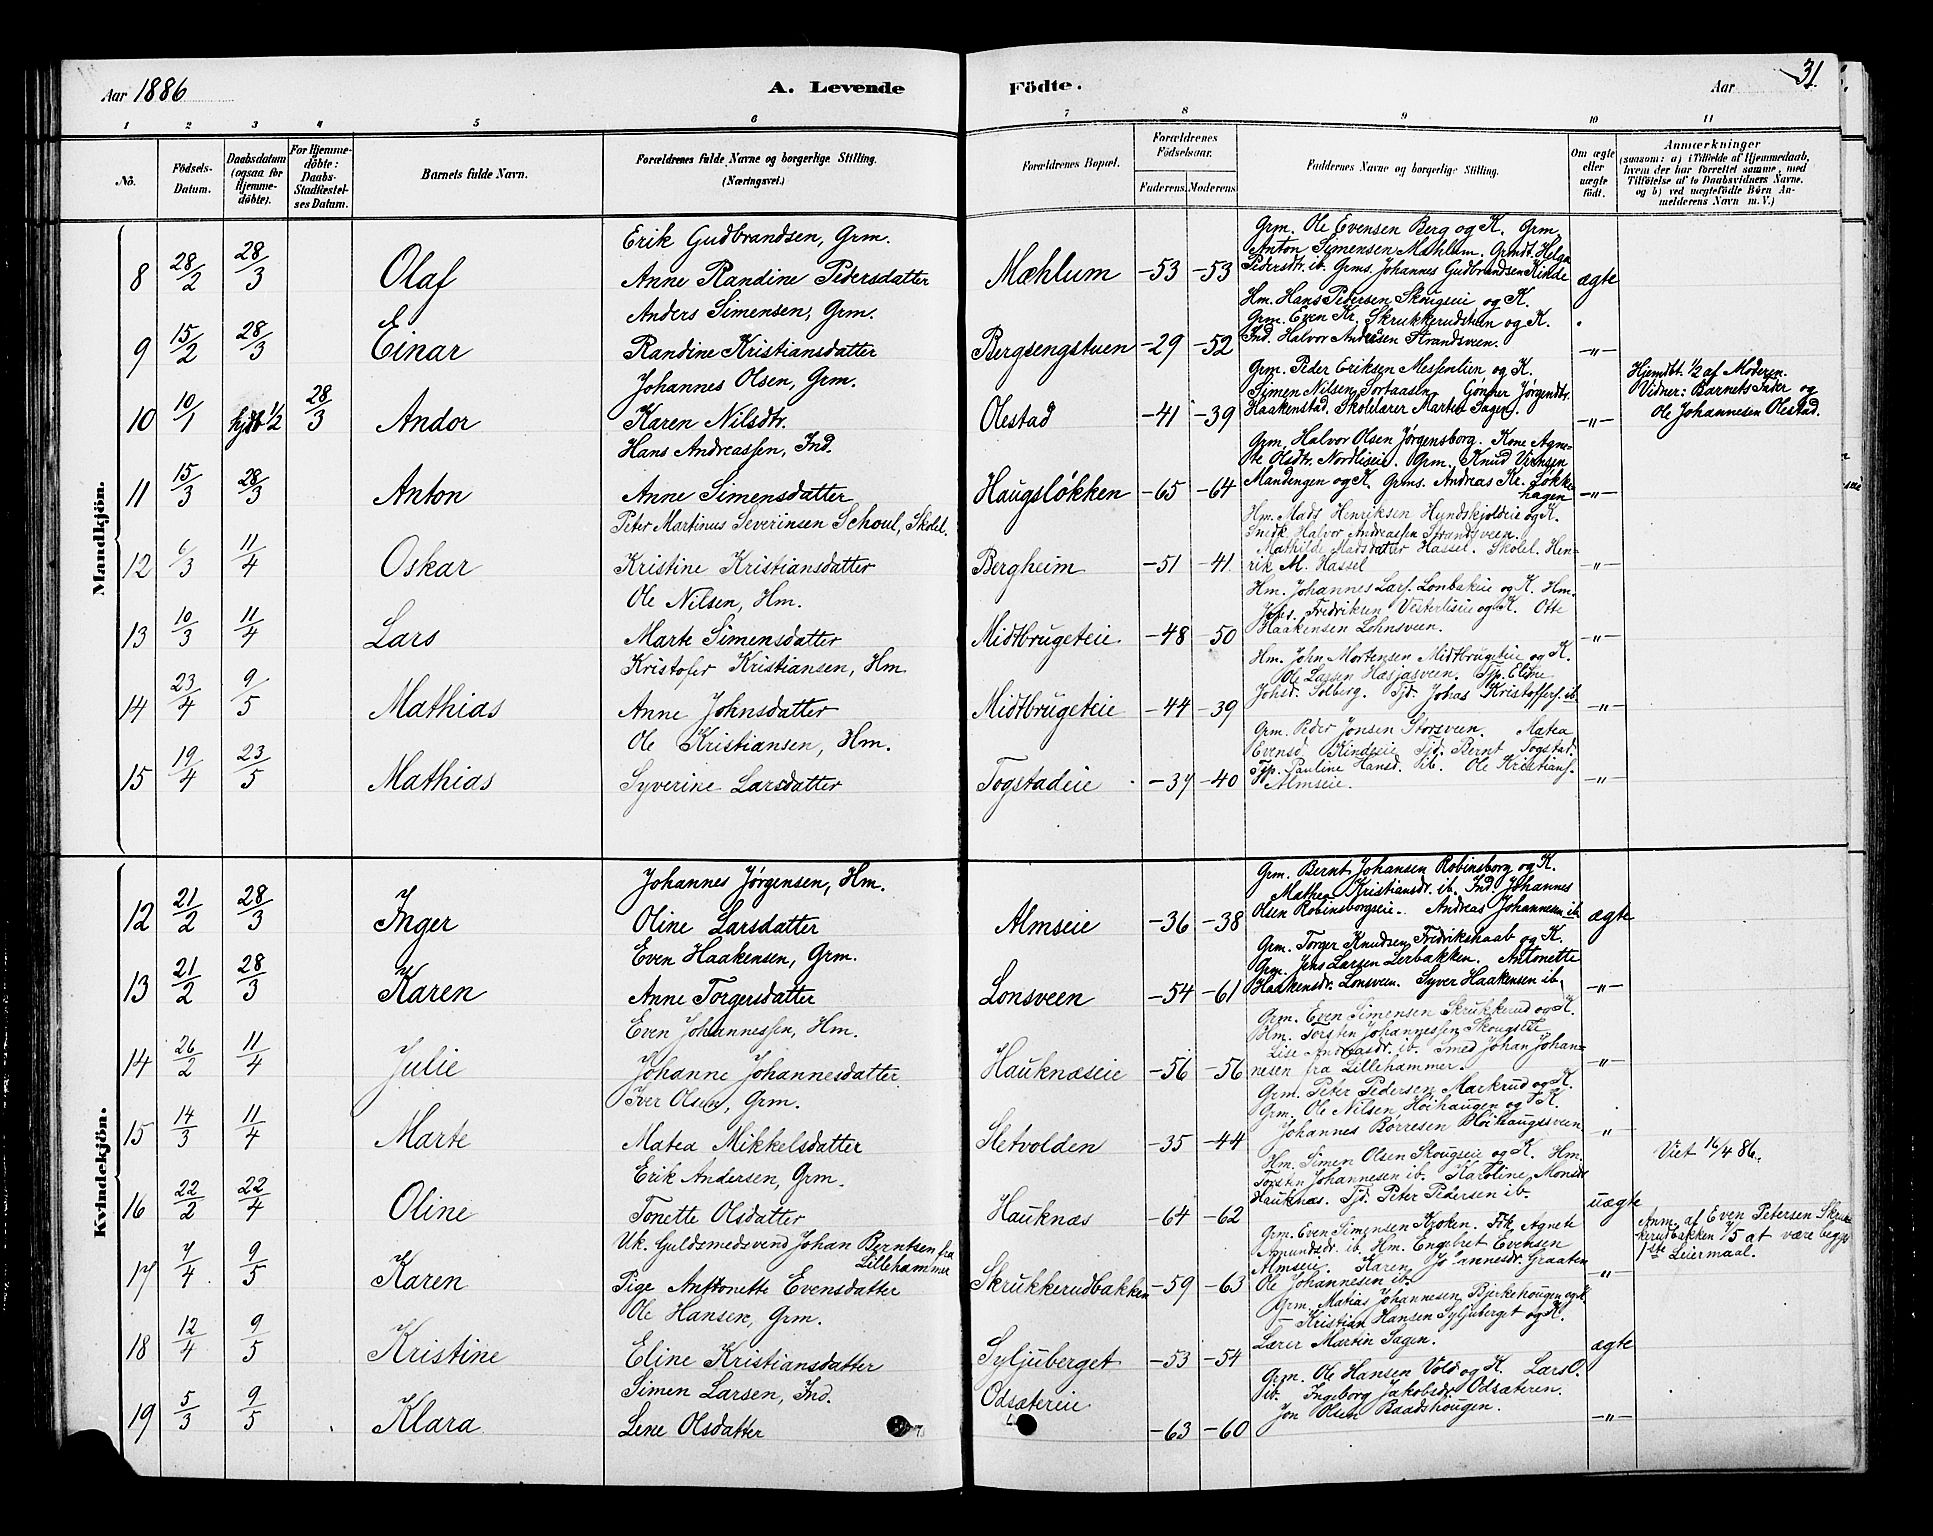 Aar 1886
A. Levende
Födte.
Aar
31.
1 2 3 4 5 6 7 8 9 10 11
No.
Födsels-
Datum.
Daabsdatum
(ogsaa for
Hjemme-
döbte).
For Hjemme-
döbte:
Daabs-
Stadfæstel-
ses Datum.
Barnets fulde Navn.
Forældrenes fulde Navne og borgerlige Stilling.
(Næringsvei.)
Forældrenes Bopæl.
Forældrenes
Födselsaar.
Faderens. Moderens.
Faddernes Navne og borgerlige Stilling.
Om ægte
eller
uægte
födt.
Anmærkninger
(saasom: a) i Tilfælde af Hjemmedaab,
hvem der har forrettet samme, med
Tilföielse af to Daabsvidners Navne,
og b) ved uægtefödte Börn An-
melderens Navn m. V.)
Mandkjön.
8 28/2 28/3 Olaf
Erik Gudbrandsen, Grm.
Anne Randine Pedersdatter
Mæhlum -53 -53
Grm. Ole Evensen Berg og K. Grm.
Anton Simensen Mæhlum. Grmdt. Helga
Pedersdtr. ib. Grms. Johannes Gudbrandsen Kinde
ægte
9 15/2 28/3 Einar
Anders Simensen, Grm.
Randine Kristiansdatter
Bergsengstuen -29 -52
Hm. Hans Pedersen Skougseie og K.
Grm. Even Kr. Skrukkerudstuen og K.
Ind. Halvor Andersen Strandsveen.
-"-
10 10/1 hjdt 1/2 28/3 Andor
Johannes Olsen, Grm.
Karen Nilsdtr.
Olestad -41 -39
Grm. Peder Eriksen Messentien og K.
Simen Nilsen Sortaasen. Jørgendtr.
Haakenstad. Skolelærer Martin Sagen.
-"-
Hjemdbt. 1/2 af Moderen.
Vidner: Barnets Fader og
Ole Johannesen Olestad.
11 15/3 28/3 Anton
Hans Andreassen, Ind.
Anne Simensdatter
Haugsløkken -65 -64
Grm. Halvor Olsen Jørgensborg. Kone Agne-
te Olsdtr. Nordliseie. Grm. Knud Iversen
Mandengen og K. Grms. Andreas Kr. Løkke-
hagen
-"-
12 6/3 11/4 Oskar
Peter Martinus Severinsen Schoul, Skolel.
Kristine Kristiansdatter
Bergheim -51 -41
Hm. Mads Henriksen Hundskjoldeie og K.
Snedk. Halvor Andreassen Strandsveen.
Mathilde Madsdatter Hassel. Skolel. Hen-
rik M. Hassel
-"-
13 10/3 11/4 Lars
Ole Nilsen, Hm.
Marte Simensdatter
Midtbrugeteie -48 -50
Hm. Johannes Lars. Lonbakeie og K. Hm.
Johs. Fredriksen Vesterliseie og K. Otte
Haakensen Lohnsveen.
-"-
14 23/4 9/5 Mathias
Kristofer Kristiansen, Hm.
Anne Johnsdatter
Midtbrugeteie -44 -39
Hm. John Mortensen Midtbrugeteie og K.
Ole Larsen Hasjasveen. Tjp. Eline
Johsd. Solberg. Tjd. Johas Kristoffers. ib.
-"-
15 19/4 23/5 Mathias
Ole Kristiansen, Hm.
Syverine Larsdatter
Togstadeie -37 -40
Grm. Peder Jonsen Storsveen. Matea
Evensd. Kindseie Tjd. Bernt Togstad.
Tjp. Pauline Hansd. ib. Ole Kristians.
Almseie.
-"-
Kvindekjön.
12 21/2 28/3 Inger
Johannes Jørgensen, Hm.
Oline Larsdatter
Almseie -36 -38
Grm. Bernt Johansen Robinsborg og K.
Mathea Kristiansdr. ib. Ind. Johannes
Olsen Robinsborgseie. Andreas Johannesen ib.
ægte
13 21/2 28/3 Karen
Even Haakensen, Grm.
Anne Torgersdatter
Lonsveen -54 -61
Grm. Torger Knudsen Fredrikshaab og K.
Grm. Jens Larsen Lerbakken. Antonette
Haakensdr. Lonsveen. Syver Haakensen ib.
-"-
14 26/2 11/4 Julie
Even Johannessen, Hm.
Johanne Johannesdatter
Hauknæseie -56 -56
Grm. Even Simensen Skrukkerud og K.
Hm. Torsten Johannessen Skougseie
Lise Andreasdr. ib. Smed Johan Johan-
nesen fra Lillehammer.
-"-
15 14/3 11/4 Marte
Iver Olsen, Grm.
Matea Mikkelsdatter
Sletvolden -35 -44
Grm. Peter Pedersen Markrud og K.
Grm. Ole Nilsen Høihaugen og K.
Johannes Børresen Høihaugsveen
"
16 22/2 22/4 Oline
Erik Andersen, Grm.
Tonette Olsdatter
Hauknæs -64 -62
Hm. Simen Olsen Skougseie og K. Hm.
Torsten Johannesen ib. Karoline Monsdt
Hauknæs. Tjd. Peter Pedersen ib.
uægte
Viet 16/4 86.
17 7/4 9/5 Karen
Uk. Guldsmedsvend Johan Berntsen fra
Lillehammer
Pige Antonette Evensdatter
Skrukkerudbakken -59 -63
Grm. Even Simensen Kroken. Frk. Agnete
Amundsdr. ib. Hm. Engebret Evensen
Almseie. Karen Johannesdr. Graaten
Ole Johannesen ib.
"
Anm. af Even Petersen Skruk-
kerudbakken 7/5 at være begges
1ste Leiermaal.
18 12/4 9/5 Kristine
Ole Hansen, Grm.
Eline Kristiansdatter
Syljuberget -53 -54
Grm. Matias Johannesen Bjerkehougen og K.
— Kristian Hansen Syljuberget og K.
Lærer Martin Sagen.
ægte
19 5/3 9/5 Klara
Simen Larsen, Ind.
Lene Olsdatter
Odsætereie
-63 -60
Grm. Ole Hansen Vold og K. Lars O.
ib. Ingeborg Jakobsdr. Odsæteren.
Jon Olsen Baadshougen.
-"-